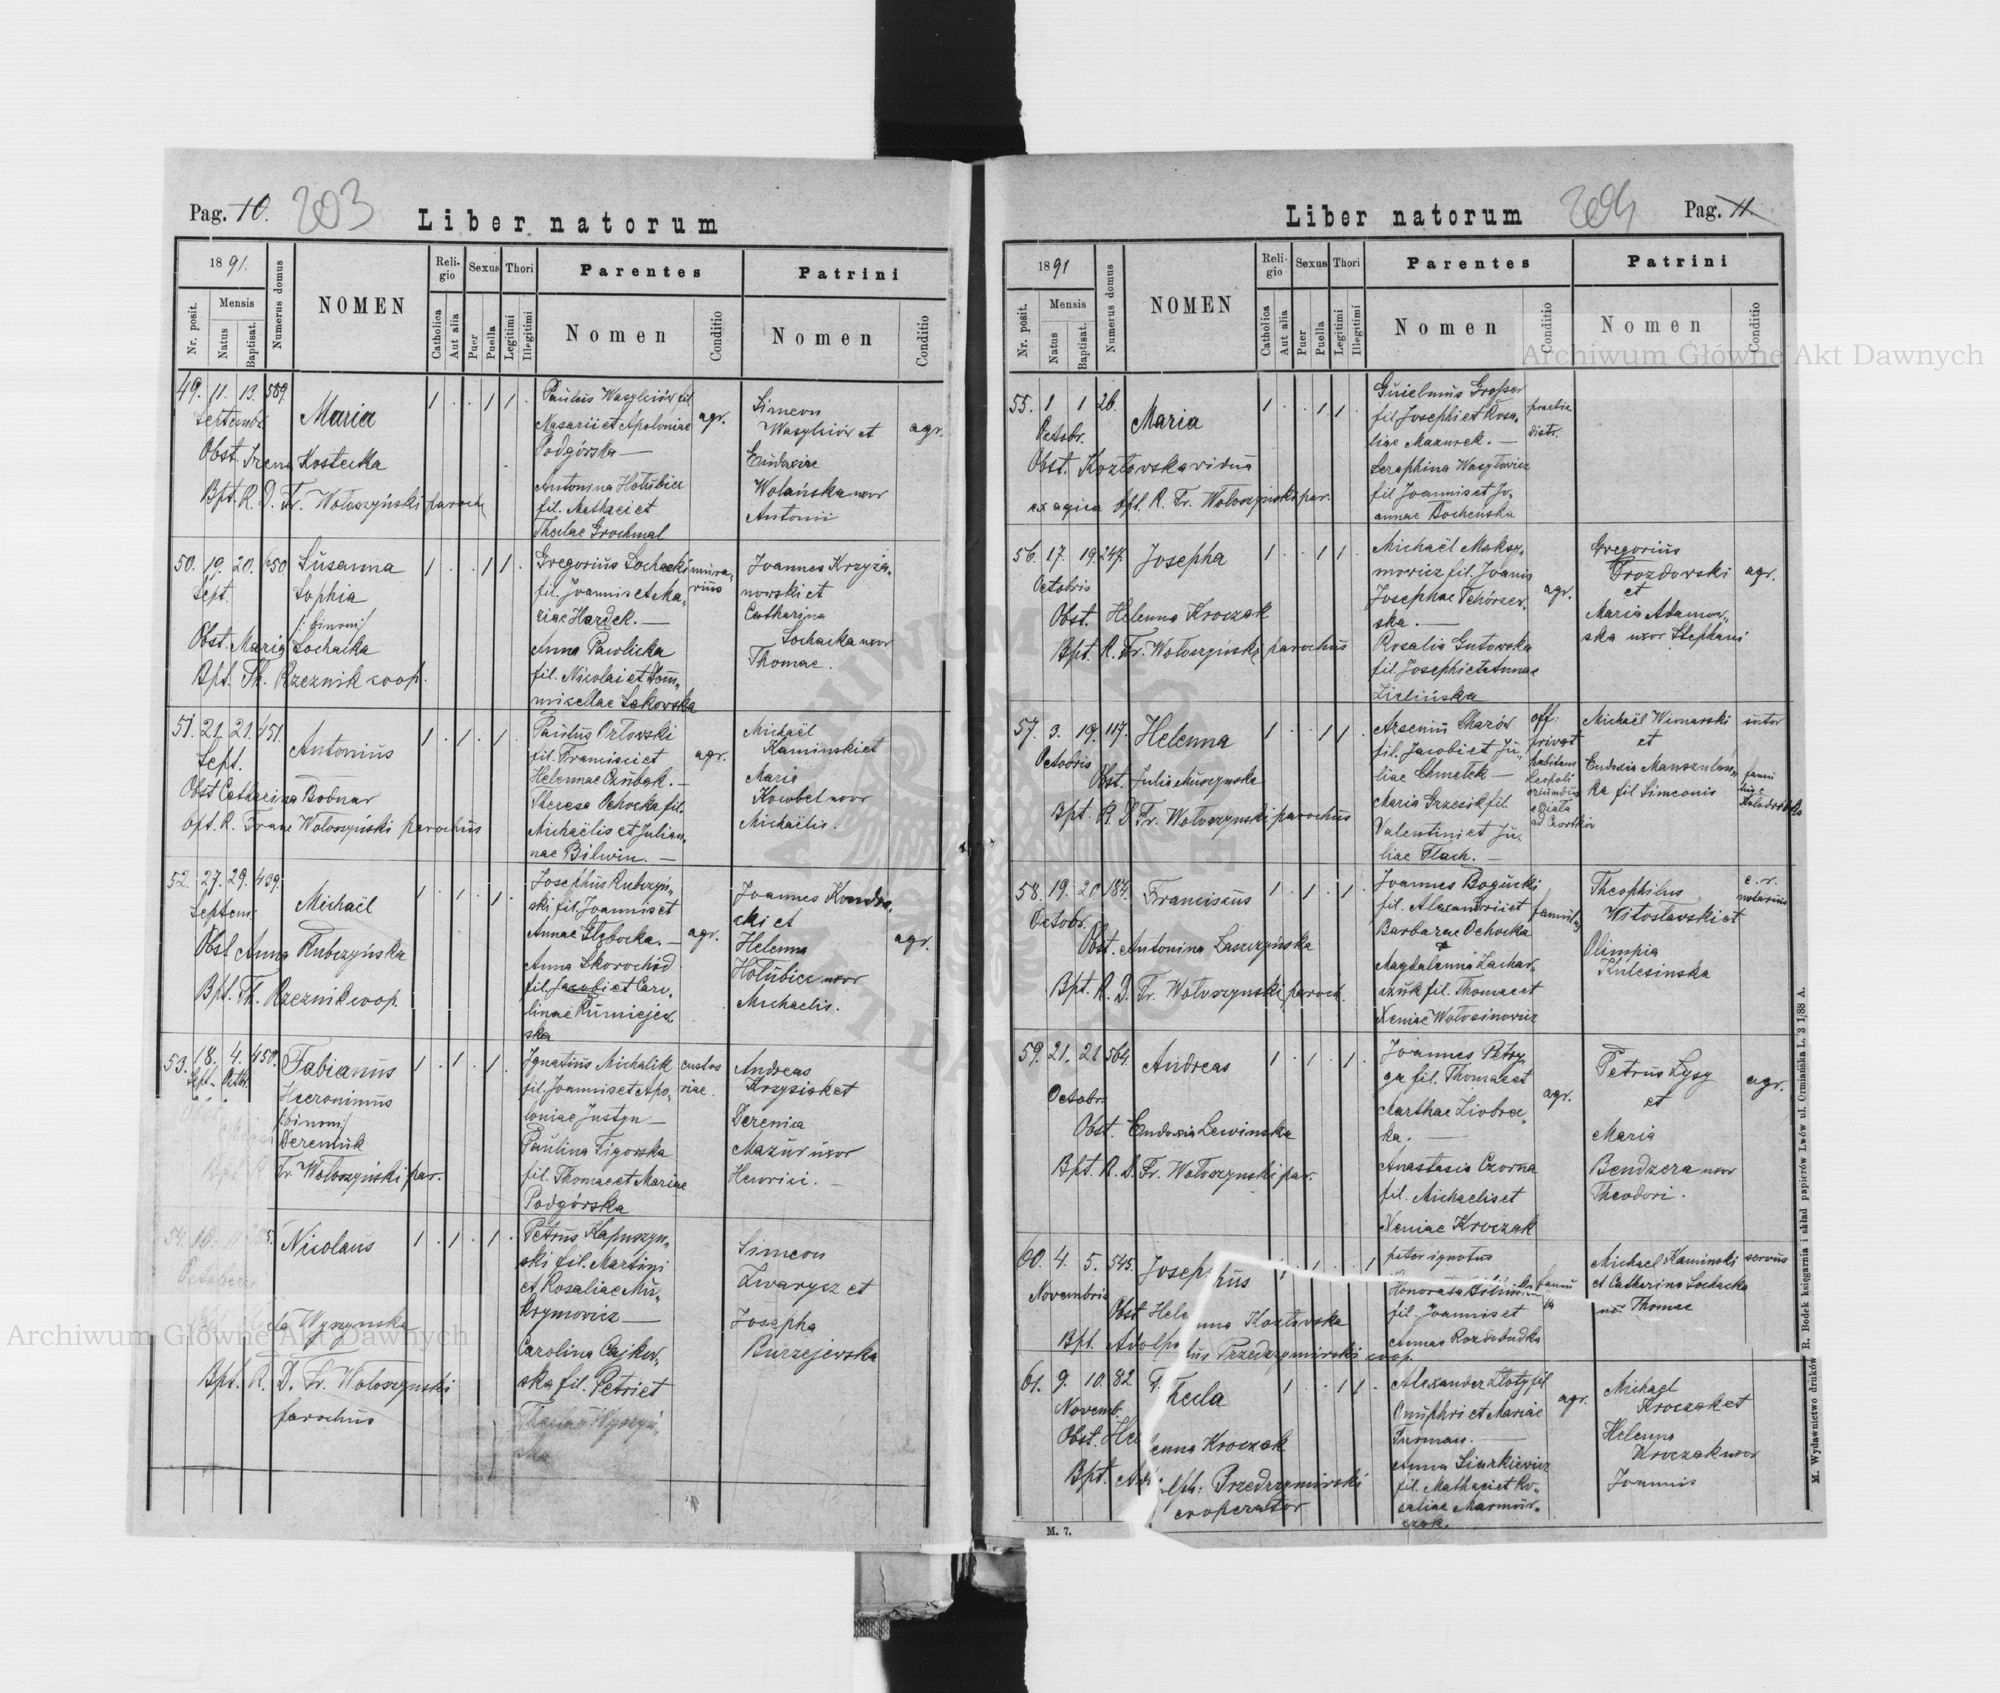 Pag. 10.
203
Liber natorum
1891.
Numerus domus
NOMEN
Religio
Sexus
Thori
Parentes
Patrini
Nr. posit.
Mensis
Natus
Baptisat.
Catholica
Aut alia
Puer
Puella
Legitimi
Illegitimi
Nomen
Conditio
Nomen
Conditio
49. 11. 13. 589.
Maria
1 . . 1 1 .
Paulus Wasylciów fil
Nasarii et Apoloniae
Podgórska —
Antonina Hołubica
fil. Mathaei et
Theclae Grochmal
agr.
Simeon
Wasylciów et
Eudoxiae
Wolańska uxor
Antonii
agr.
Obst. Irena Kostecka
Bpt. R. D. Fr. Wołoszyński paroch
50. 19. 20. 650
Sept.
Susanna
Sophia
/: binomi/
1 . . 1 1 .
Gregorius Sochacki
fil. Joannis et Ma„
riae Hardek. —
Anna Pawlicka
fil. Nicolai et Dom„
micellae Sakowska
mura„
rius
Joannes Krzyża„
nowski et
Catharina
Sochacka uxor
Thomae.
Obst. Maria Sochacka
Bpt. Th. Rzeznik coop.
51. 21. 21. 451.
Sept.
Antonius
1 . 1 . 1 .
Paulus Orłowski
fil. Francisci et
Helennae Czubak. —
Theresa Ochocka fil.
Michaëlis et Julian„
nae Bilwin. —
agr.
Michaël
Kaminski et
Maria
Kowbel uxor
Michaëlis.
Obst Catharina Bodnar
Bpt. R. Franc Wołoszyński parochus
52. 27. 29. 439.
Septem:
Michaël
1 . 1 . 1 .
Josephus Rubczyń„
ski fil. Joannis et
Annae Głębocka. —
Anna Skorochód
fil. Jacobi et Caro„
linae Rumiejew„
ska
agr.
Joannes Kondra„
cki et
Helenna
Hołubica uxor
Michaelis.
agr.
Obst Anna Rubczyńska
Bpt. Th. Rzeznik coop.
53. 18. 4. 450.
Sept. Octbr.
Fabianus
Hieronimus
/binomi/
1 . 1 . 1 .
Ignatius Michalik
fil. Joannis et Apo„
loniae Justyn —
Paulina Figorska
fil. Thomae et Mariae
Podgórska
custos
viae.
Andreas
Krzysik et
Perenica
Mazur uxor
Henrici. —
Deremiuk
Fr. Wołoszyński par.
54. 10.
Nicolaus
1 . 1 . 1 .
Petrus Kapuszyn„
ski fil. Martini
et Rosaliae Mu„
krymovicz —
Carolina Czajkow„
ska fil. Petri et
Simeon
Zwarycz et
Josepha
Burzejewska
Wyzynska
Bpt. R. D. Fr. Wołoszynski
parochus
Liber natorum
204
Pag. 11.
1891
Numerus domus
NOMEN
Religio
Sexus
Thori
Parentes
Patrini
Nr. posit.
Mensis
Natus
Baptisat.
Catholica
Aut alia
Puer
Puella
Legitimi
Illegitimi
Nomen
Conditio
Nomen
Conditio
55. 1 1 26.
Octobr.
Maria
1 . . 1 1 .
Guielmus Grosser
fil Josephi et Rosa„
liae Mazurek. —
Seraphina Wasyłowicz
fil Joannis et Jo„
annae Bochenska
Obst. Kozłowska vidua
ex aqua Bpt. R. Fr. Wołoszynski par.
56. 17. 19. 247.
Octobris
Josepha
1 . . 1 1 .
Michaël Maksy„
mowicz fil. Joanis
Josephae Tchórzew„
ska. —
Rosalia Gutowska
fil Josephi et Annae
Zielińska
agr.
Gregorius
Drozdowski
et
Maria Adamow„
ska uxor Stephani
agr.
Obst. Helenna Kroczak
Bpt. R. Fr. Wołoszynski parochus
57. 3. 19. 117.
Octobris
Helenna
1 . . 1 1 .
Arsenius Charów
fil. Jacobi et Ju„
liae Chmelek —
Maria Grzesik fil
Valentini et Ju„
liae Flach. —
off:
privat
habitans
Leopoli
oriundus
e Biała
ad Czortków
Michaël Winarski
et
Eudoxia
ka fil Simeonis
sutor
Obst. Julia Muszynska
Bpt. R. D. Fr. Wołoszynski parochus
58. 19. 20 184.
Octobr.
Franciscus
1 . 1 . 1 .
Joannes Bogucki
fil. Alexandri et
Barbarae Ochocka
Magdalenna Zachar„
czuk fil. Thomae et
Xeniae Wołosinowicz
famulus
Theophilus
Witosławski et
Olimpia
Kulesinska
c. r.
notarius
Obst. Antonina Laszczyńska
Bpt. R. D. Fr. Wołoszynski paroch.
59. 21. 21 564.
Octobr.
Andreas
1 . 1 . 1 .
Joannes Petry„
ga fil. Thomae et
Marthae Ziobrec„
ka. —
Anastasia Czorna
fil. Michaelis et
Xeniae Kroczak
agr.
Petrus Łysy
et
Maria
Bendzera uxor
Theodori.
agr.
Obst. Eudoxia Lewinska
Bpt. R. D. Fr. Wołoszynski par.
60. 4. 5. 545.
Novembris
Josephus
1 . 1 . . 1
pater ignotus
Honorata Bilinski
fil. Joannis et
Annae Rozdobudko
famu
la
Michael Kaminski
et Catharina Sochacka
uxor Thomae
servus
Obst Helenna Kozłowska
Bpt. Adolphus Przedrzymirski coop.
61. 9. 10. 82.
Novemb.
Thecla
1 . . 1 1 .
Alexander Złoty fil
Onuphri et Mariae
Furman. —
Anna Siarkiewicz
fil. Mathaei et Ro„
saliae Marmur„
czak.
agr.
Michael
Kroczak et
Helenna
Kroczak uxor
Joannis
Obst. Helenna Kroczak
Bpt. Adolph: Przedrzymirski
cooperator
M. 7.
M. Wydawnictwo druków R. Bodek księgarnia i skład papierów Lwów ul. Ormiańska L. 3 1/88 A.
Archiwum Główne Akt Dawnych
Archiwum Główne Akt Dawnych